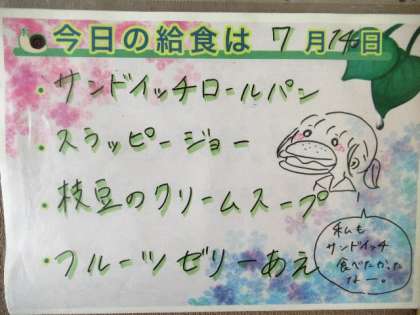 今日の給食は 7月14日
・サンドイッチロールパン
・スラッピージョー
・枝豆のクリームスープ
・フルーツゼリーあえ
私も
サンドイッチ
食べたかった
なー。